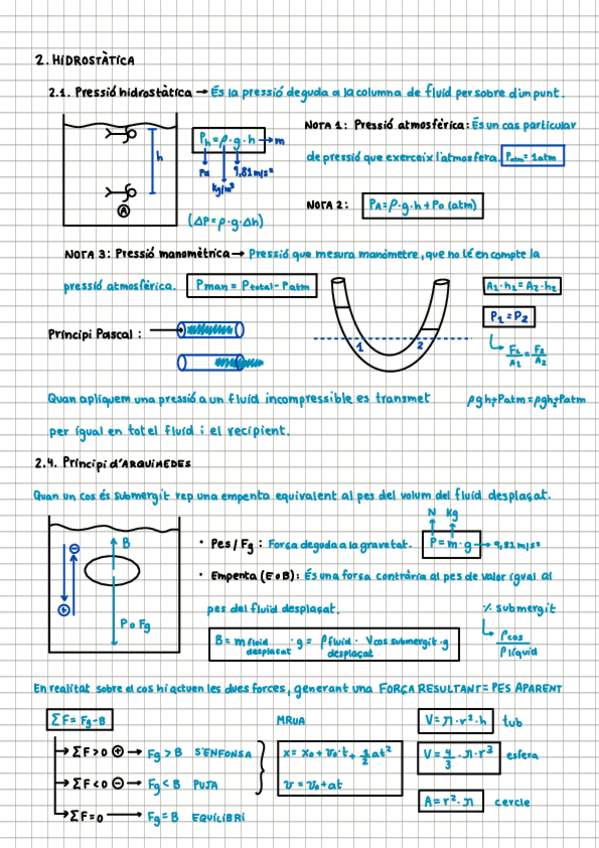 2. HIDROSTÀTICA
2.1. Pressió hidrostàtica → És la pressió deguda a la columna de fluid per sobre d'un punt.
h
A
Ph = ρ · g · h → m
Pa
kg/m³
9,81 m/s²
(ΔP = ρ · g · Δh)
NOTA 1: Pressió atmosfèrica: És un cas particular
de pressió que exerceix l'atmosfera. Patm = 1atm
NOTA 2: PA = ρ · g · h + Po (atm)
NOTA 3: Pressió manomètrica → Pressió que mesura manòmetre, que no té en compte la
pressió atmosfèrica. Pman = Ptotal - Patm
A1 · h1 = A2 · h2
P1 = P2
F1/A1 = F2/A2
1 2
Principi Pascal:
Quan apliquem una pressió a un fluid incompressible es transmet
per igual en tot el fluid i el recipient.
ρgh1+Patm = ρgh2+Patm
2.4. Principi d'ARQUIMEDES
Quan un cos és submergit rep una empenta equivalent al pes del volum del fluid desplaçat.
⊖
⊕
B
P o Fg
N Kg
• Pes / Fg : Força deguda a la gravetat. P = m · g → 9,81 m/s²
• Empenta (E o B): És una força contrària al pes de valor igual al
pes del fluid desplaçat.
B = m fluid desplaçat · g = ρ fluid desplaçat · V cos submergit · g
% submergit
ρcos/ρlíquid
En realitat sobre el cos hi actuen les dues forces, generant una FORÇA RESULTANT = PES APARENT
ΣF = Fg - B
→ ΣF > 0 ⊕ → Fg > B S'ENFONSA
→ ΣF < 0 ⊖ → Fg < B PUJA
→ ΣF = 0 → Fg = B EQUILIBRI
MRUA
x = x0 + v0 · t + 1/2 at²
v = v0 + at
V = π · r² · h tub
V = 4/3 · π · r³ esfera
A = r² · π cercle